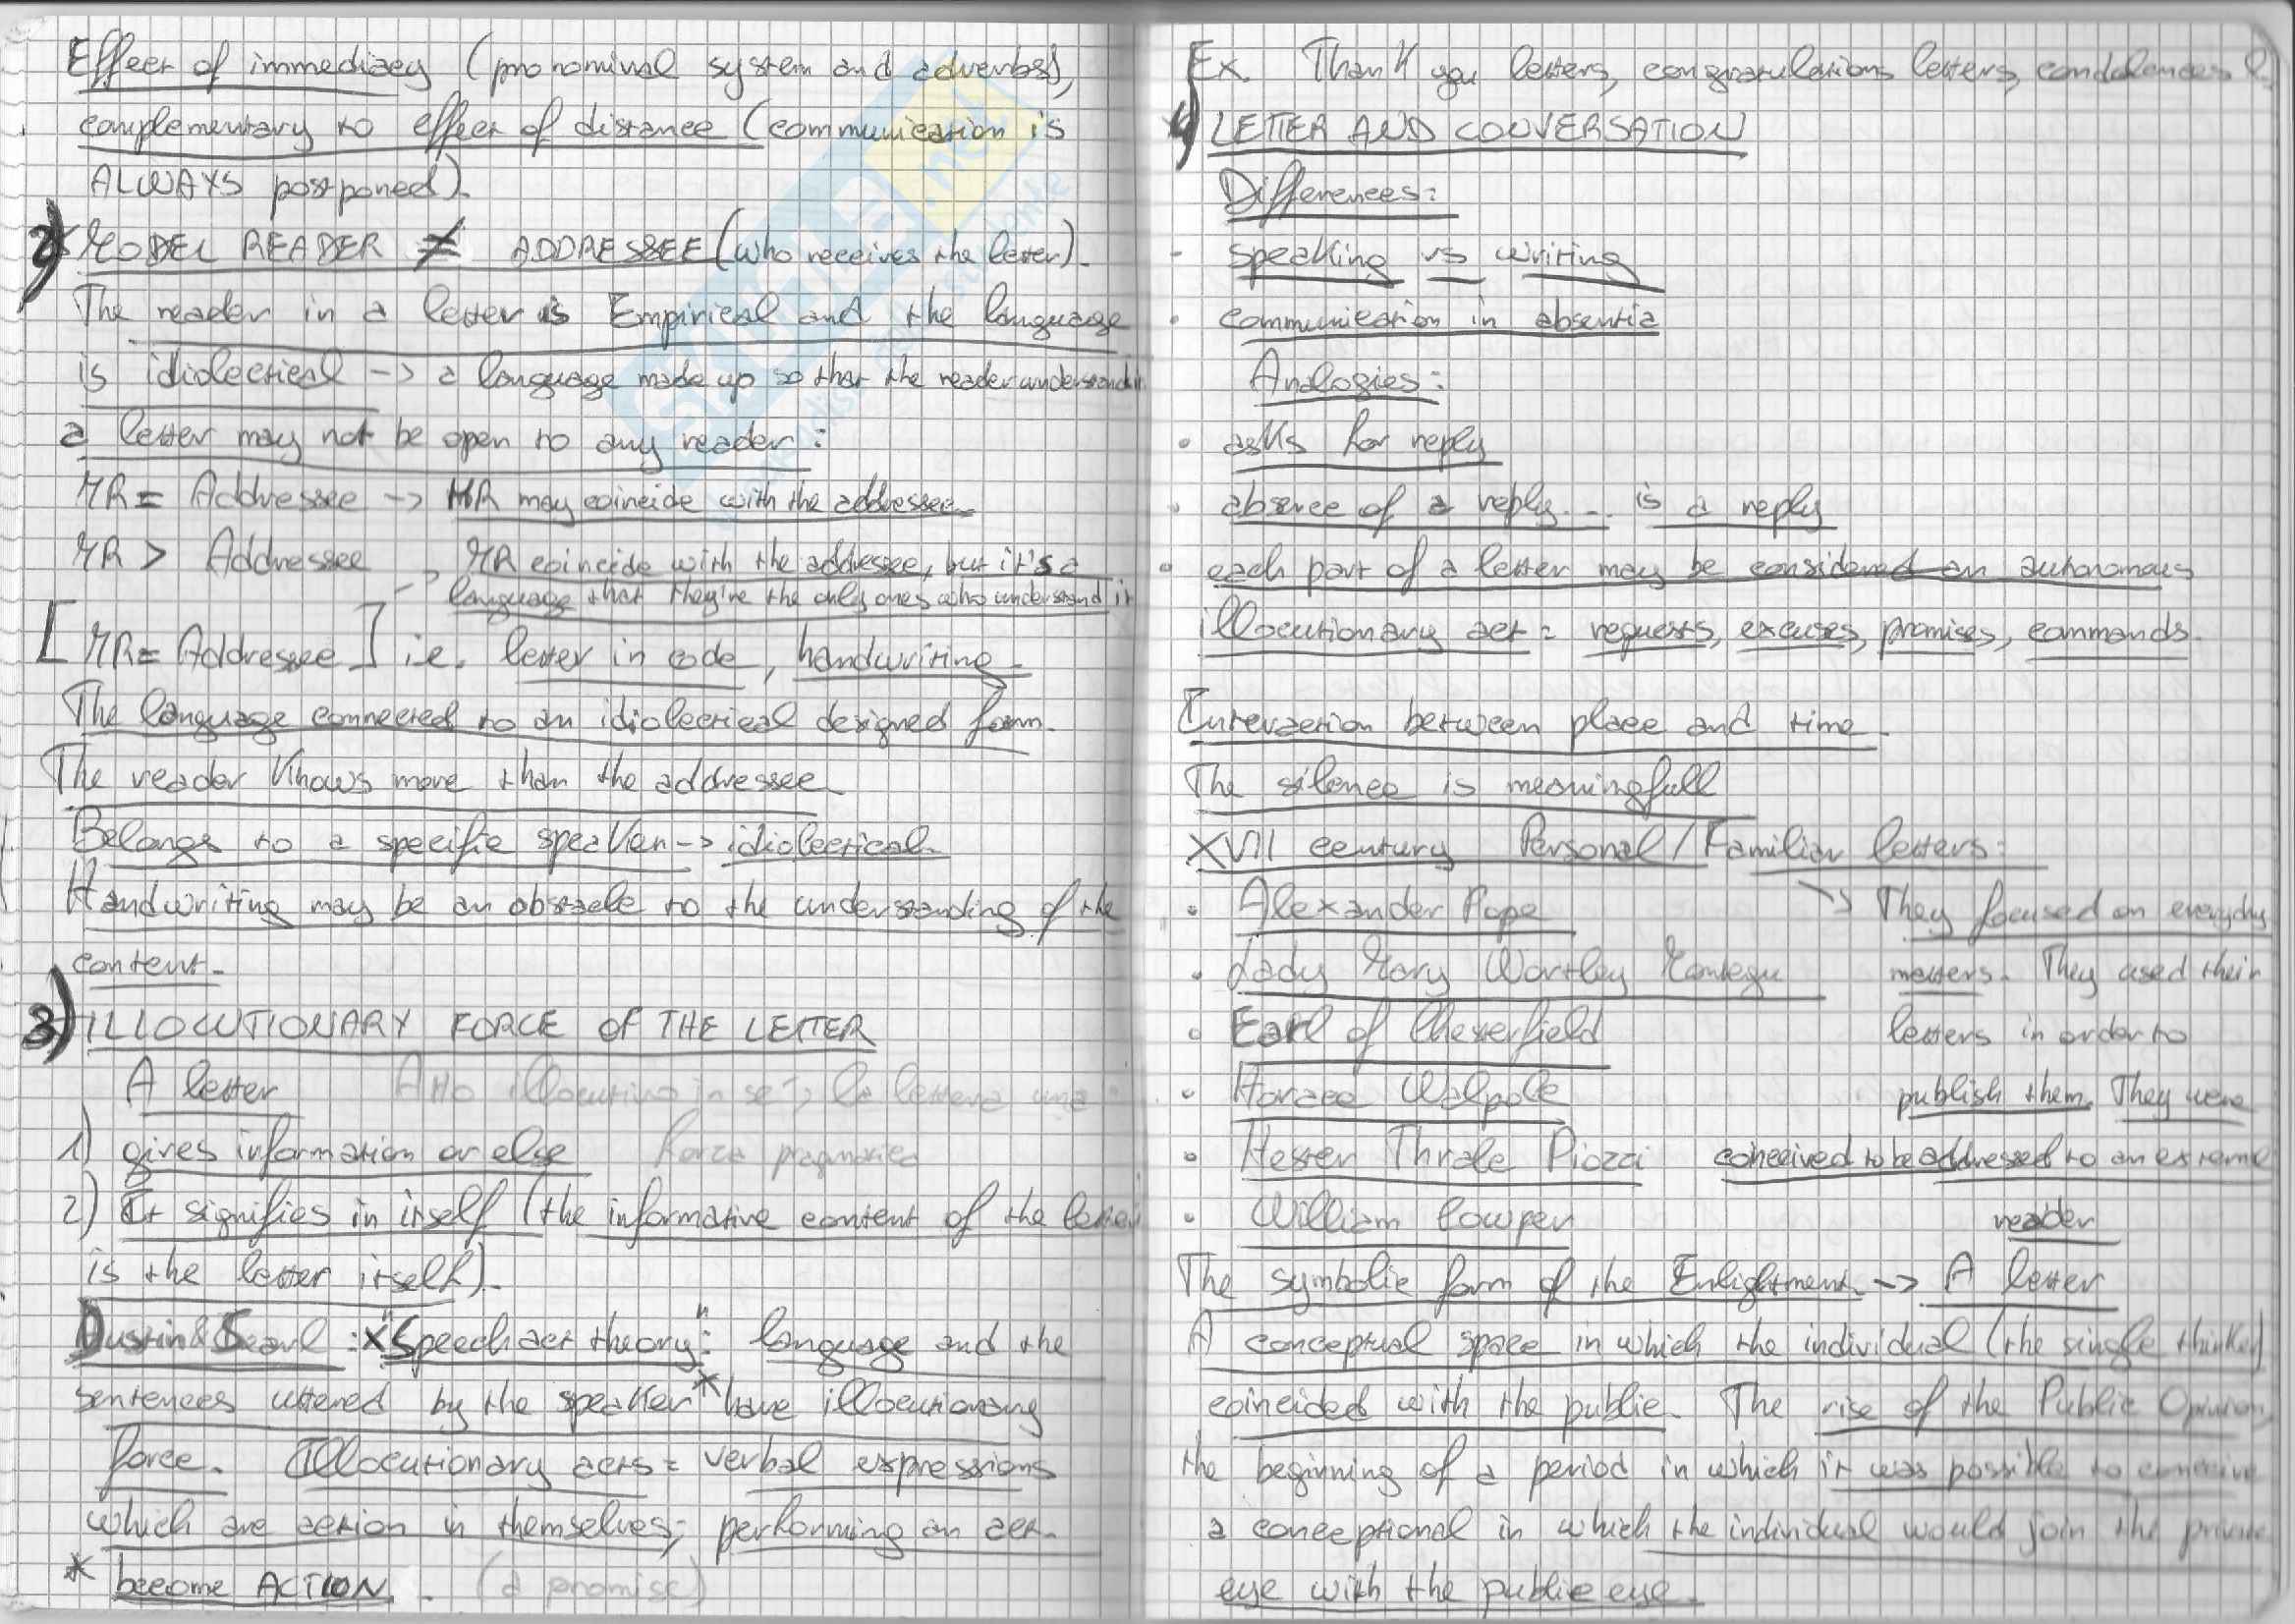 Effect of immediacy (pronominal system and adverbs),
complementary to effect of distance (communication is
ALWAYS postponed).
2) MODEL READER ≠ ADDRESSEE (who receives the letter).
The reader in a letter is Empirical and the language
is idiolectical -> a language made up so that the reader understand it
a letter may not be open to any reader:
MR = Addressee -> MR may coincide with the addressee
MR > Addressee -> MR coincide with the addressee, but it's a
language that they're the only ones who understand it
[MR = Addressee] i.e. letter in code, handwriting
The language connected to an idiolectical designed form.
The reader knows more than the addressee
Belongs to a specific speaker -> idiolectical.
Handwriting may be an obstacle to the understanding of the
content.
3) ILLOCUTIONARY FORCE OF THE LETTER
A letter Atto illocutivo in sé, la lettera una
1) gives information or else forza pragmatica
2) It signifies in itself (the informative content of the letter
is the letter itself).
Austin & Searl: * "Speech act theory": language and the
sentences uttered by the speaker * have illocutionary
force. Illocutionary acts = verbal expressions
which are action in themselves; performing an act.
* become ACTION. (a promise)
Ex. Thank you letters, congratulations letters, condolences l.
4) LETTER AND CONVERSATION
Differences:
- speaking vs writing
• communication in absentia
Analogies:
• asks for reply
• absence of a reply... is a reply
• each part of a letter may be considered an autonomous
illocutionary act = requests, excuses, promises, commands.
Interaction between place and time.
The silence is meaningfull
XVIII century Personal/Familiar letters:
• Alexander Pope -> They focused on everyday
• Lady Mary Wortley Montegu matters. They used their
• Earl of Chesterfield letters in order to
• Horace Walpole publish them. They were
• Hester Thrale Piozzi conceived to be addressed to an external
• William Cowper reader
The symbolic form of the Enlightment -> A letter
A conceptual space in which the individual (the single thinker)
coincided with the public. The rise of the Public Opinion,
the beginning of a period in which it was possible to conceive
a conceptional in which the individual would join the private
eye with the public eye.